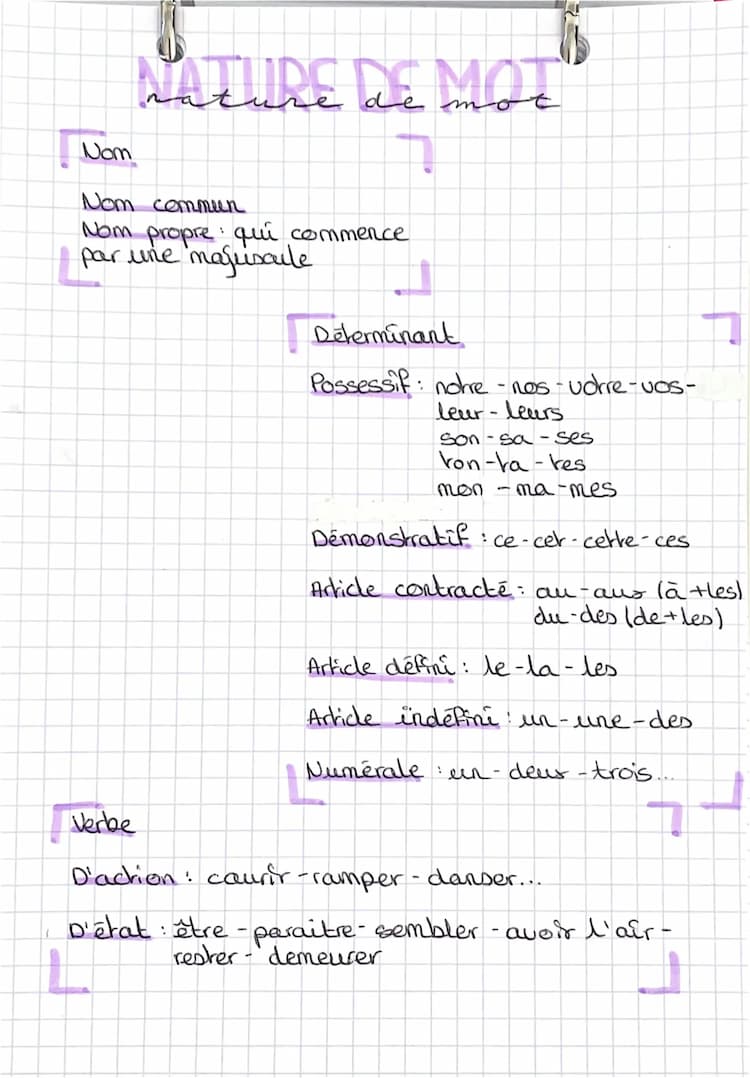 NATURE DE MOT
nature de mot
Nom
Nom commun
Nom propre : qui commence
par une majuscule
Déterminant
Possessif : notre - nos - votre - vos -
leur - leurs
son - sa - ses
ton - ta - tes
mon - ma - mes
Démonstratif : ce - cet - cette - ces
Article contracté : au - aux (à + les)
du - des (de + les)
Article défini : le - la - les
Article indéfini : un - une - des
Numérale : un - deux - trois...
Verbe
D'action : courir - ramper - danser...
D'état : être - paraitre - sembler - avoir l'air -
rester - demeurer